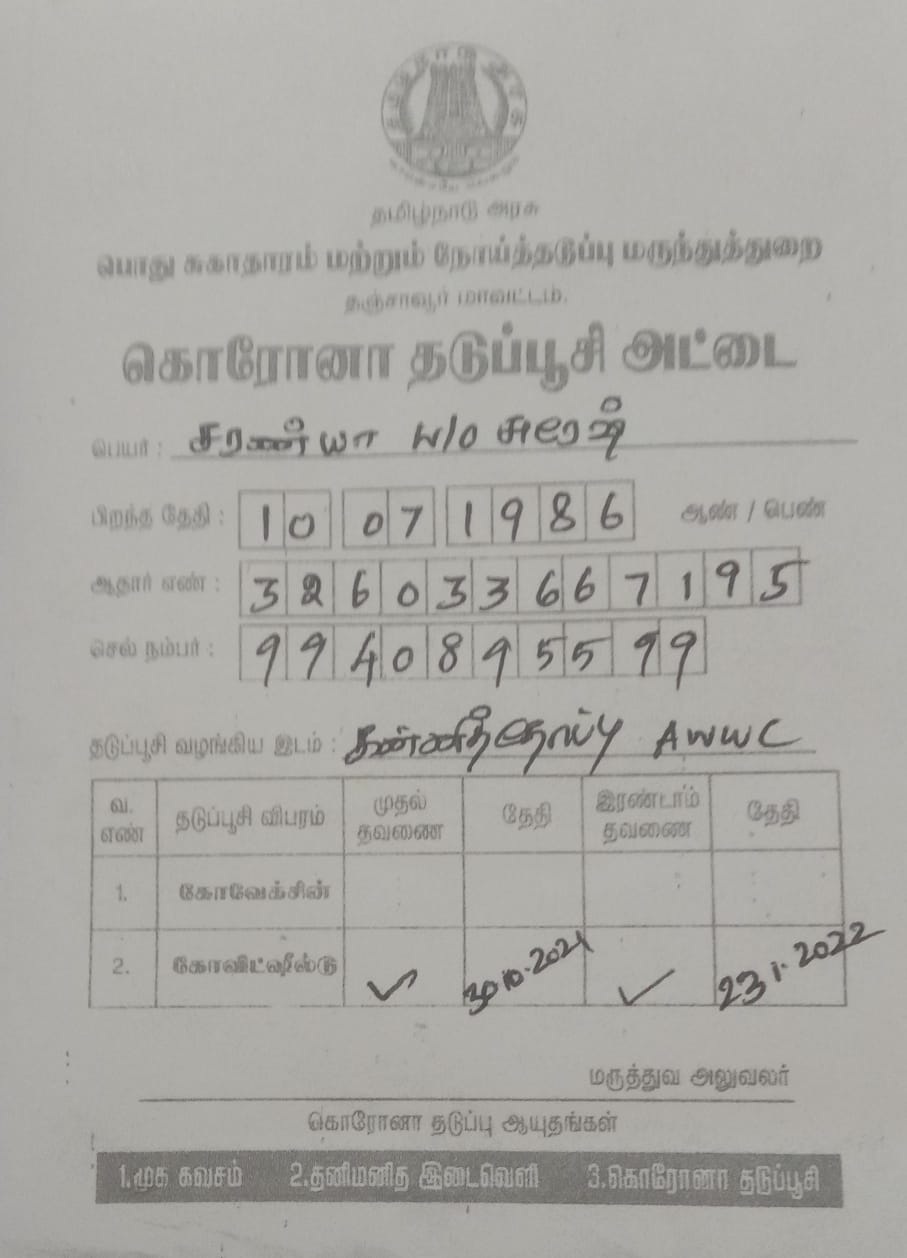 தமிழ்நாடு அரசு
பொது சுகாதாரம் மற்றும் நோய்த்தடுப்பு மருந்துத்துறை
தஞ்சாவூர் மாவட்டம்.
கொரோனா தடுப்பூசி அட்டை
பெயர் : சரண்யா W/O சுரேஷ்
பிறந்த தேதி : 10 07 1986 ஆண் / பெண்
ஆதார் எண் : 326033667195
செல் நம்பர் : 9940895599
தடுப்பூசி வழங்கிய இடம் : கண்ணித்தோப்பு AWWC
வ. எண் தடுப்பூசி விபரம் முதல் தவணை தேதி இரண்டாம் தவணை தேதி
1. கோவேக்சின்
2. கோவிட்ஷீல்டு ✓ 30.10.2021 ✓ 23.1.2022
மருத்துவ அலுவலர்
கொரோனா தடுப்பு ஆயுதங்கள்
1.முக கவசம் 2.தனிமனித இடைவெளி 3.கொரோனா தடுப்பூசி